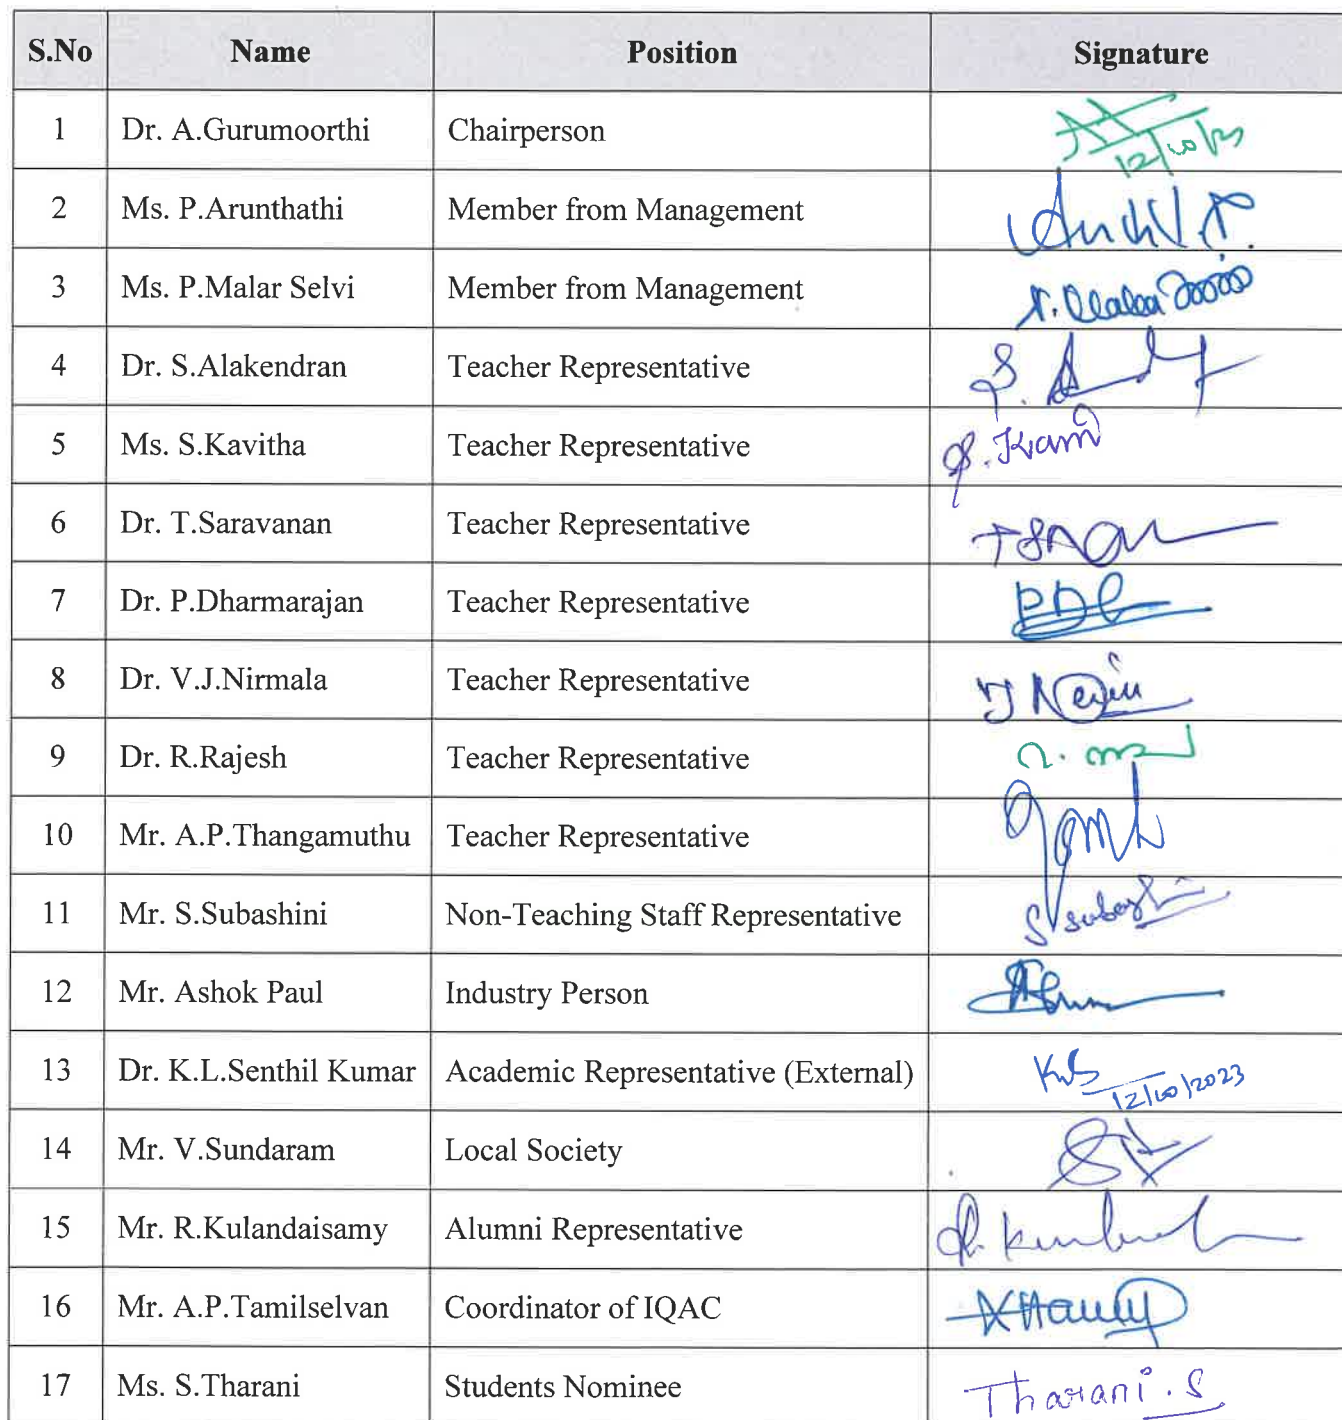 S.No Name Position Signature
1 Dr. A.Gurumoorthi Chairperson
12/10/23
2 Ms. P.Arunthathi Member from Management
3 Ms. P.Malar Selvi Member from Management
4 Dr. S.Alakendran Teacher Representative
5 Ms. S.Kavitha Teacher Representative
6 Dr. T.Saravanan Teacher Representative
7 Dr. P.Dharmarajan Teacher Representative
8 Dr. V.J.Nirmala Teacher Representative
9 Dr. R.Rajesh Teacher Representative
10 Mr. A.P.Thangamuthu Teacher Representative
11 Mr. S.Subashini Non-Teaching Staff Representative
12 Mr. Ashok Paul Industry Person
13 Dr. K.L.Senthil Kumar Academic Representative (External)
12/10/2023
14 Mr. V.Sundaram Local Society
15 Mr. R.Kulandaisamy Alumni Representative
16 Mr. A.P.Tamilselvan Coordinator of IQAC
17 Ms. S.Tharani Students Nominee Tharani.S